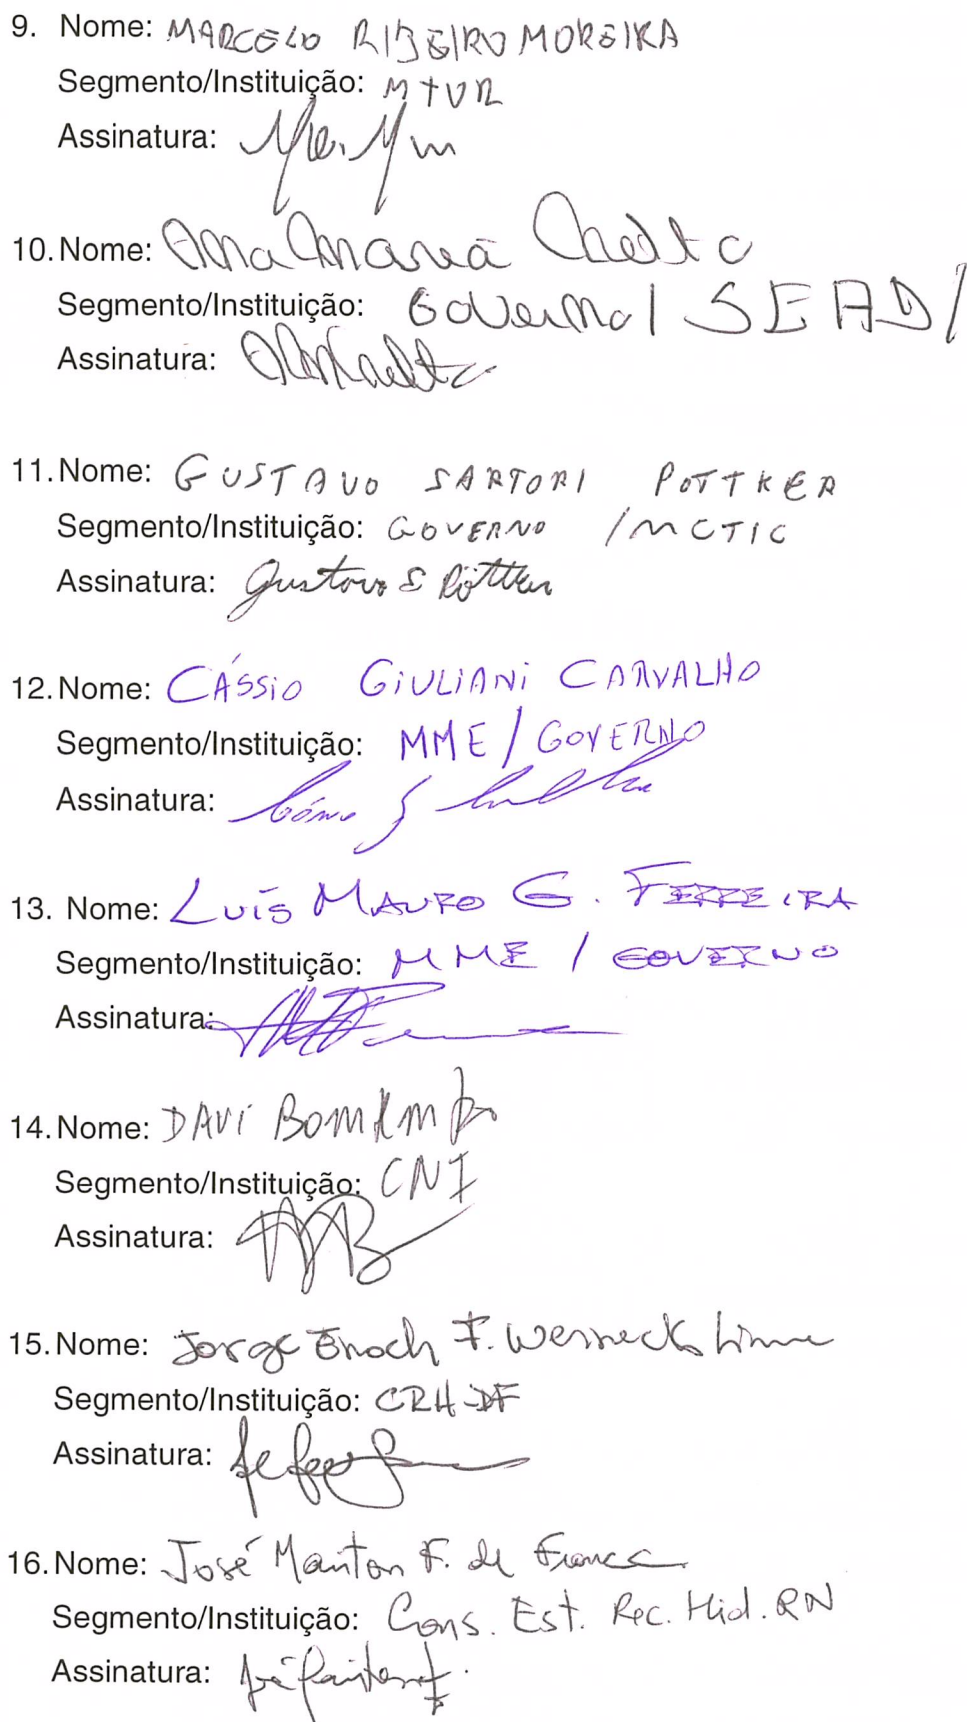 9. Nome: MARCELO RIBEIRO MOREIRA
Segmento/Instituição: MTUR
Assinatura:
10. Nome: Ana Maria
Segmento/Instituição: Governo / SEAD /
Assinatura:
11. Nome: GUSTAVO SARTORI POTTKER
Segmento/Instituição: GOVERNO / MCTIC
Assinatura: Gustavo S Pottker
12. Nome: CÁSSIO GIULIANI CARVALHO
Segmento/Instituição: MME / GOVERNO
Assinatura:
13. Nome: LUÍS MAURO G. FERREIRA
Segmento/Instituição: MME / GOVERNO
Assinatura:
14. Nome: DAVI BOMTEMPO
Segmento/Instituição: CNI
Assinatura:
15. Nome: Jorge Enoch F. Werneck Lima
Segmento/Instituição: CRH-DF
Assinatura:
16. Nome: José Mairton F. de França
Segmento/Instituição: Cons. Est. Rec. Hid. RN
Assinatura: